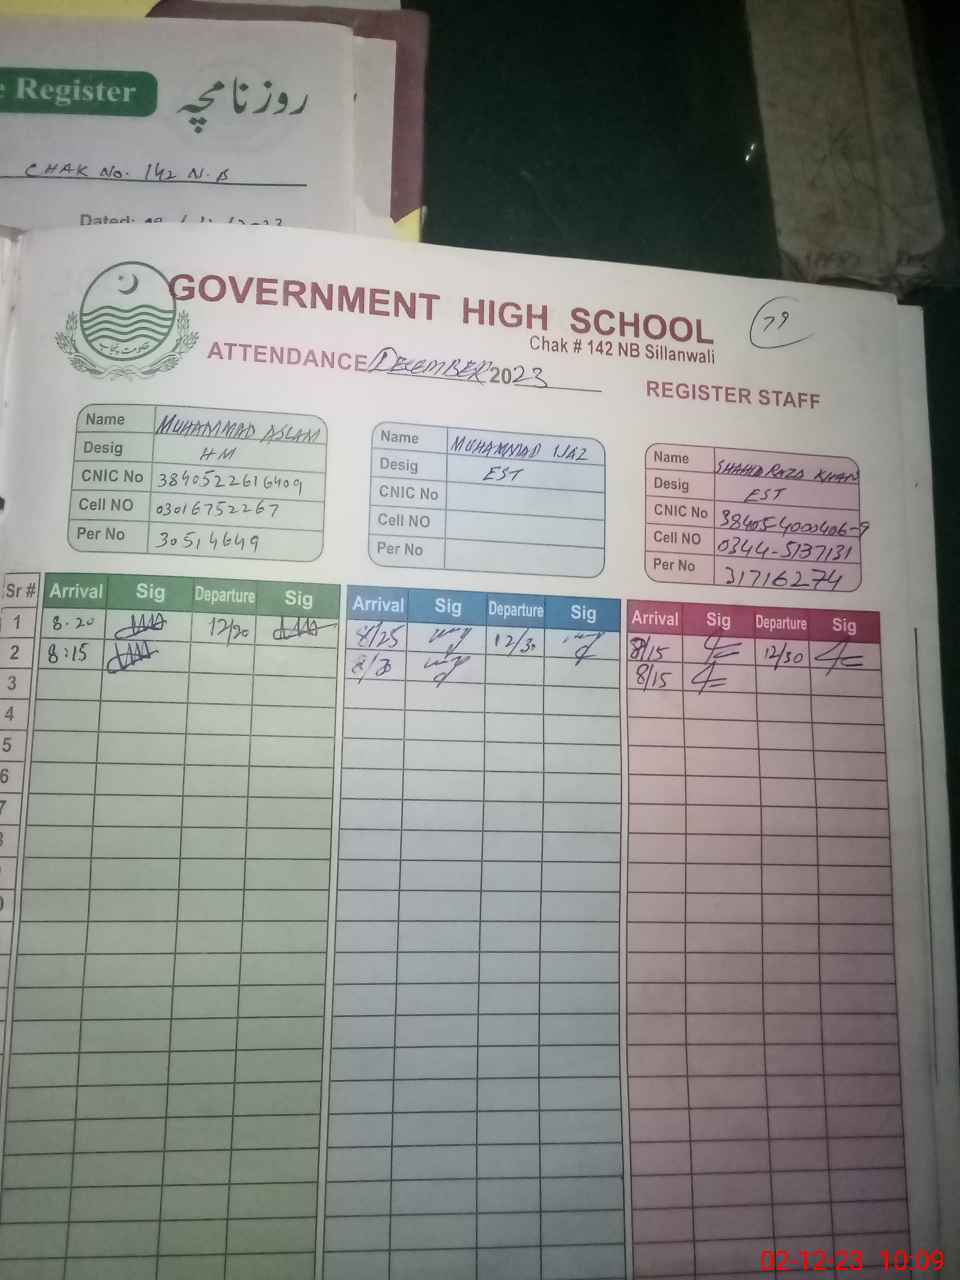 e Register روزنامچہ
CHAK No. 142 N.B
Dated: /2023
حکومت پنجاب
GOVERNMENT HIGH SCHOOL
79
Chak # 142 NB Sillanwali
ATTENDANCE DECEMBER 2023
REGISTER STAFF
Name MUHAMMAD ASLAM
Desig HM
CNIC No 3840522616409
Cell NO 03016752267
Per No 30514649
Name MUHAMMAD IJAZ
Desig EST
CNIC No
Cell NO
Per No
Name SHAHID RAZA KHAN
Desig EST
CNIC No 38405-4000406-9
Cell NO 0344-5137131
Per No 31716274
Sr # Arrival Sig Departure Sig Arrival Sig Departure Sig Arrival Sig Departure Sig
1 8.20 12/20 8/25 12/30 8/15 12/30
2 8:15 8/15
3
4
5
6
7
02-12-23 10:09